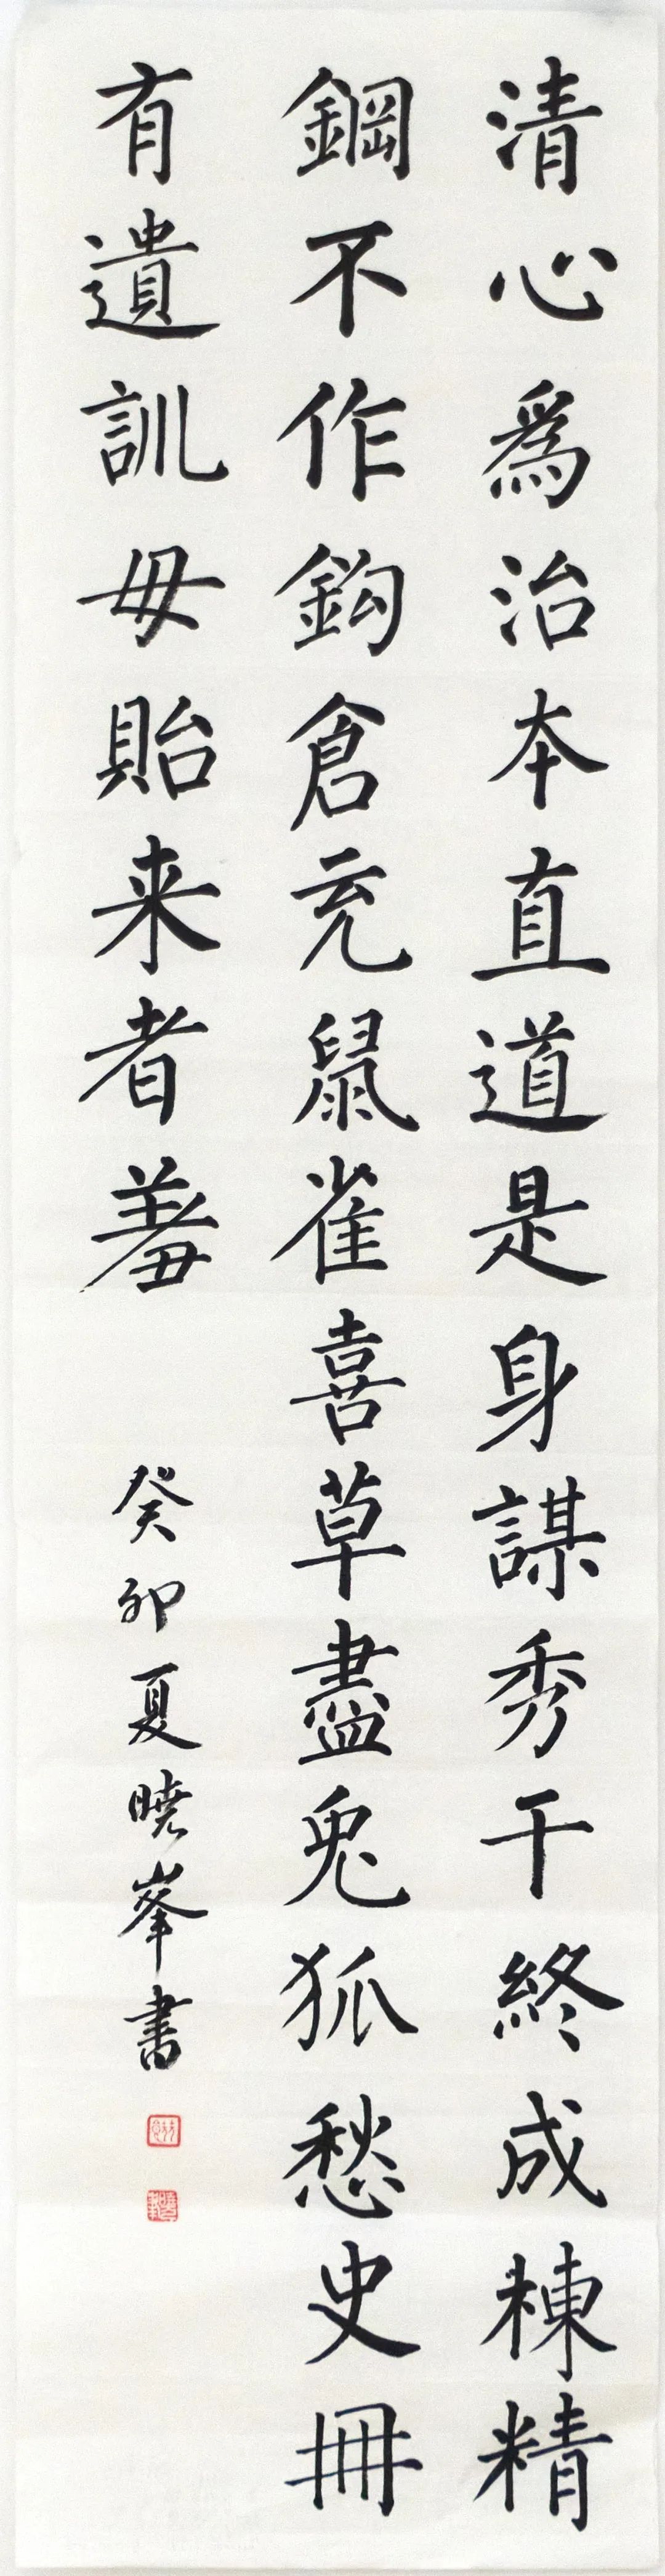 清心為治本直道是身謀秀干終成棟精
鋼不作鈎倉充鼠雀喜草盡兎狐愁史冊
有遺訓毋貽来者羞
癸卯夏曉峯書